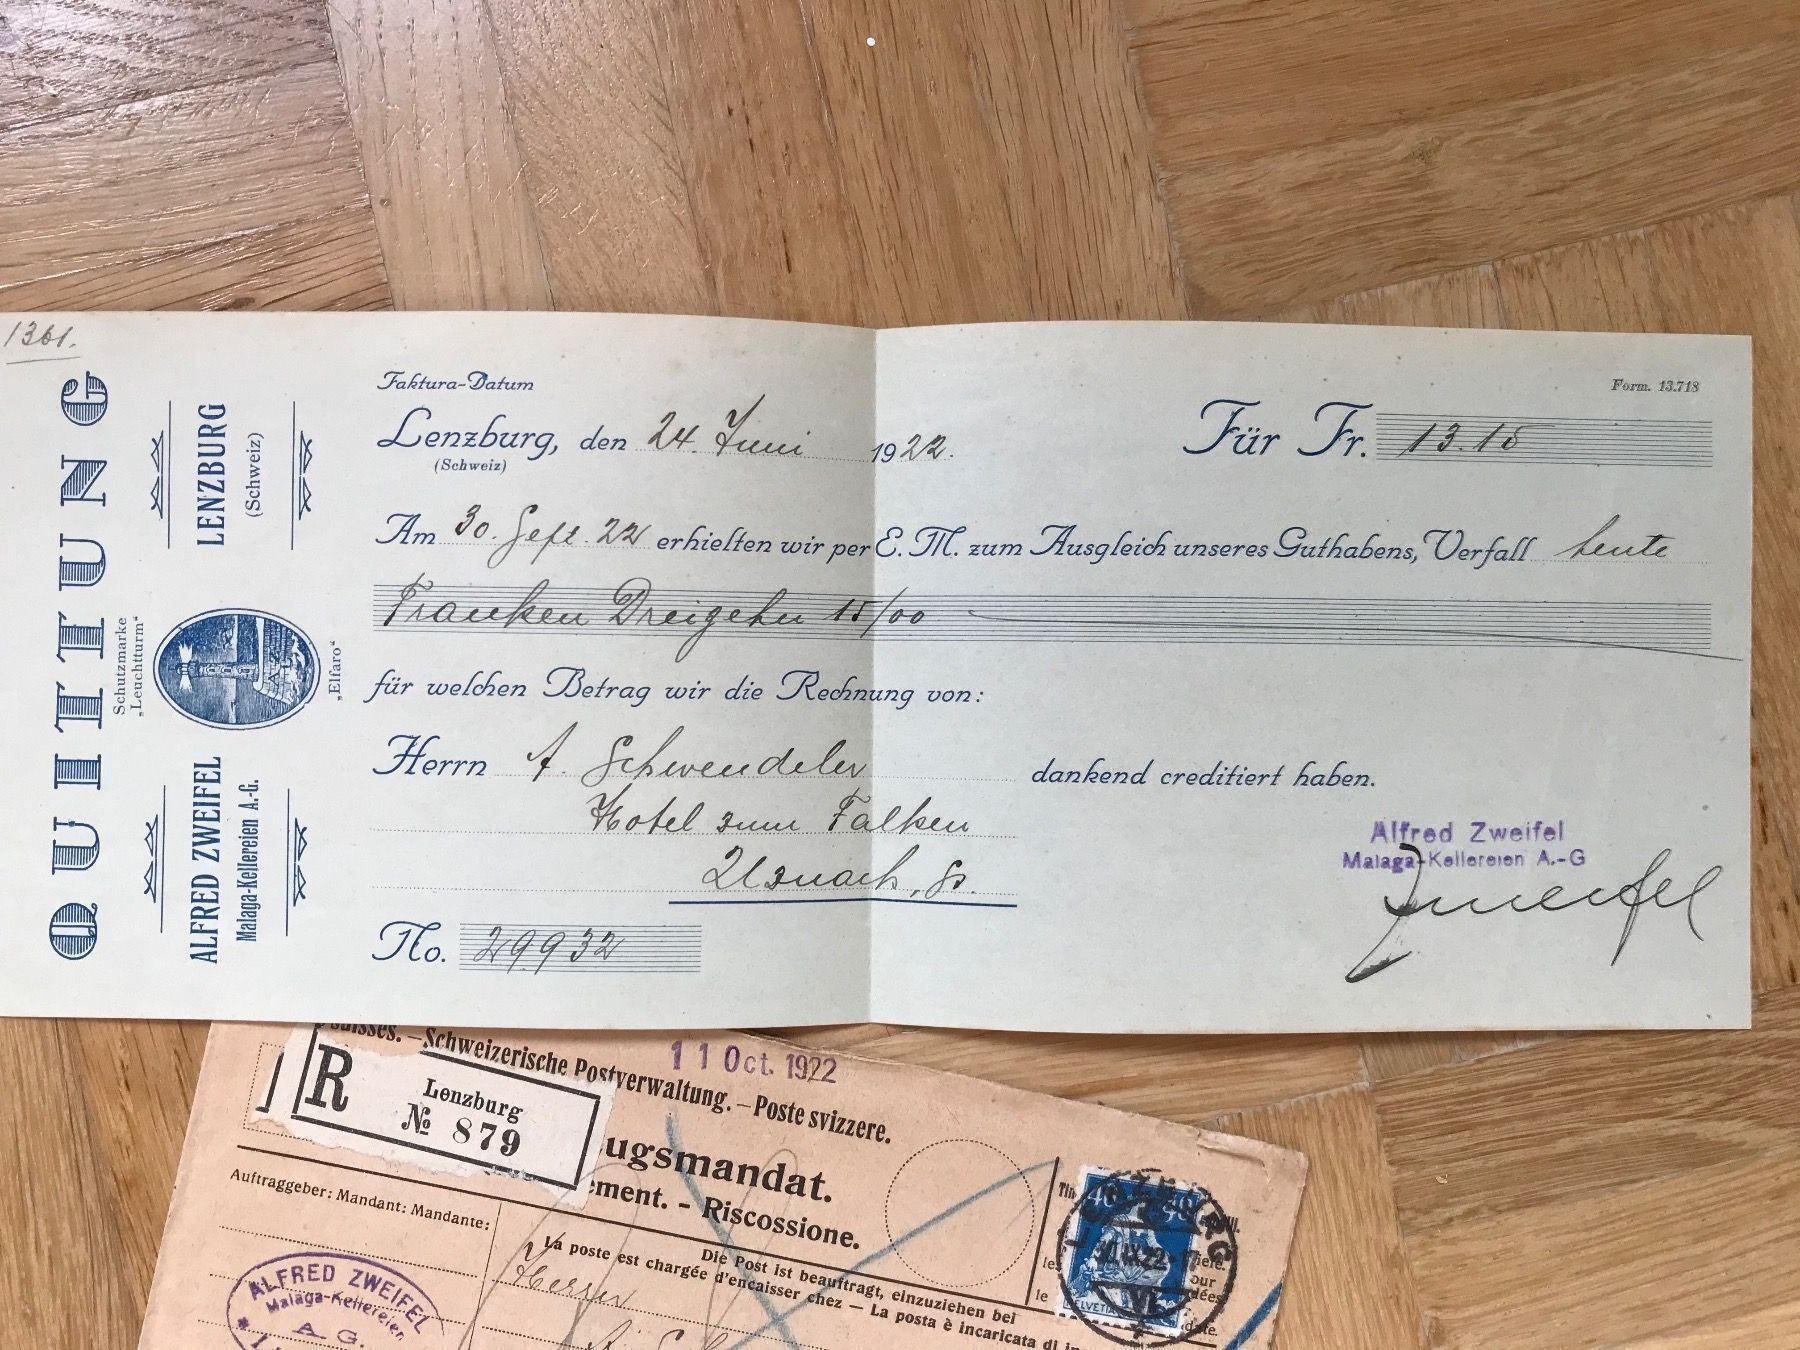 1361.
QUITTUNG
Schutzmarke
„Leuchtturm“
ALFRED ZWEIFEL
Malaga-Kellereien A.-G.
LENZBURG
(Schweiz)
„Elfaro“
Form. 13.718
Faktura-Datum
Lenzburg, den 24. Juni 1922.
(Schweiz)
Für Fr. 13.15
Am 30. Sept. 22 erhielten wir per E. M. zum Ausgleich unseres Guthabens, Verfall heute
Franken Dreizehn 15/00
für welchen Betrag wir die Rechnung von:
Herrn A. Schwendeler
dankend creditiert haben.
Hotel zum Falken
Uznach, St.
Alfred Zweifel
Malaga-Kellereien A.-G
Zweifel
No. 29932
suisses. – Schweizerische Postverwaltung. – Poste svizzere.
11 Oct. 1922
R
Lenzburg
№ 879
ugsmandat.
ement. - Riscossione.
Auftraggeber: Mandant: Mandante:
Die Post ist beauftragt, einzuziehen bei
La poste est chargée d'encaisser chez – La posta è incaricata di
Herrn
ALFRED ZWEIFEL
Malaga-Kellereien
A. G.
40
HELVETIA
LENZBURG
VI